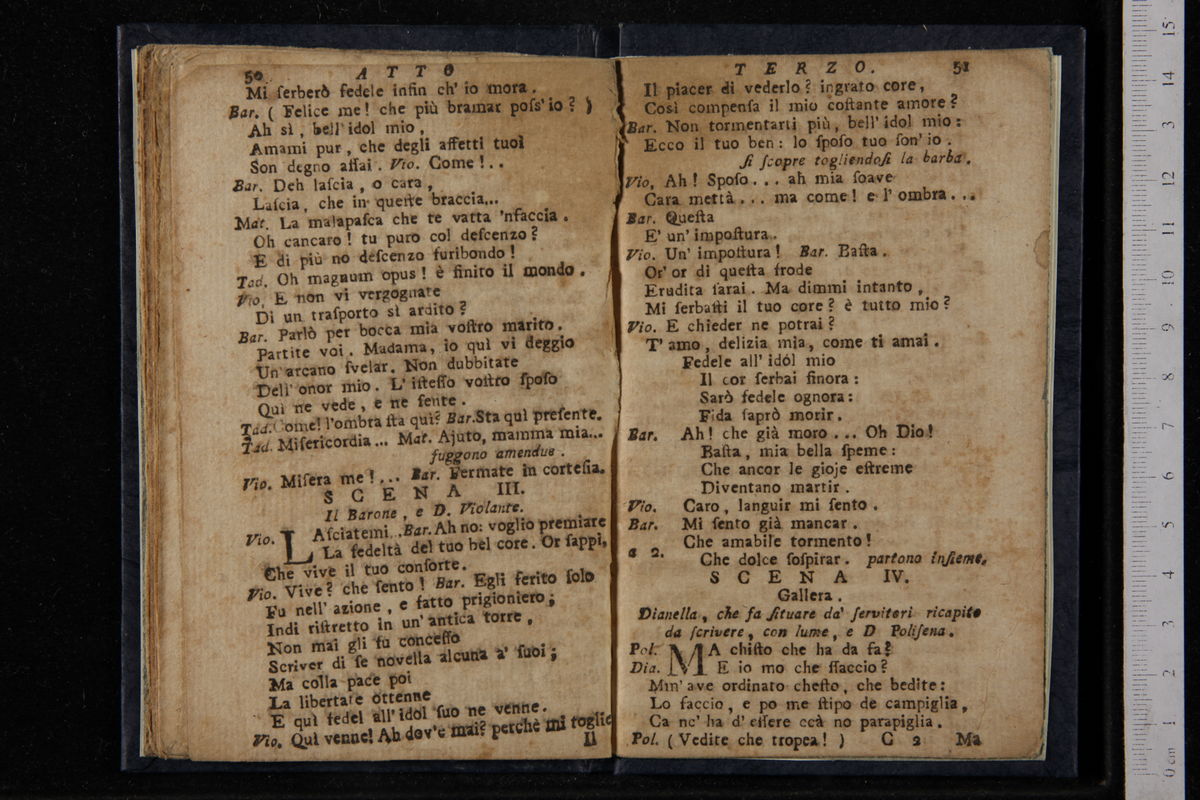 50 ATTO
Mi ſerberò fedele infin ch' io mora.
Bar. ( Felice me! che più bramar poſs' io? )
Ah sì, bell' idol mio,
Amami pur, che degli affetti tuoi
Son degno aſſai. Vio. Come!..
Bar. Deh laſcia, o cara,
Laſcia, che in queſte braccia...
Mat. La malapaſca che te vatta 'nfaccia.
Oh cancaro! tu puro col deſcenzo?
E di più no deſcenzo furibondo!
Tad. Oh magnum opus! è finito il mondo.
Vio. E non vi vergognate
Di un traſporto sì ardito?
Bar. Parlò per bocca mia voſtro marito.
Partite voi. Madama, io quì vi deggio
Un' arcano ſvelar. Non dubbitate
Dell' onor mio. L' iſteſſo voſtro ſpoſo
Quì ne vede, e ne ſente.
Tad. Come! l'ombra ſta quì? Bar. Sta quì preſente.
Tad. Miſericordia... Mat. Ajuto, mamma mia...
fuggono amendue.
Vio. Miſera me!... Bar. Fermate in corteſia.
SCENA III.
Il Barone, e D. Violante.
Vio. LAſciatemi... Bar. Ah no: voglio premiare
La fedeltà del tuo bel core. Or ſappi,
Che vive il tuo conſorte.
Vio. Vive? che ſento! Bar. Egli ferito ſolo
Fu nell' azione, e fatto prigioniero;
Indi riſtretto in un' antica torre,
Non mai gli fu conceſſo
Scriver di ſe novella alcuna a' ſuoi;
Ma colla pace poi
La libertate ottenne
E quì fedel all' idol ſuo ne venne.
Vio. Quì venne! Ah dov'e mai? perchè mi toglie
Il
TERZO. 51
Il piacer di vederlo? ingrato core,
Così compenſa il mio coſtante amore?
Bar. Non tormentarti più, bell' idol mio:
Ecco il tuo ben: lo ſpoſo tuo ſon' io.
ſi ſcopre togliendoſi la barba.
Vio. Ah! Spoſo... ah mia ſoave
Cara mettà... ma come! e l' ombra...
Bar. Queſta
E' un' impoſtura.
Vio. Un' impoſtura! Bar. Baſta.
Or' or di queſta frode
Erudita ſarai. Ma dimmi intanto,
Mi ſerbaſti il tuo core? è tutto mio?
Vio. E chieder ne potrai?
T' amo, delizia mia, come ti amai.
Fedele all' idól mio
Il cor ſerbai finora:
Sarò fedele ognora:
Fida ſaprò morir.
Bar. Ah! che già moro... Oh Dio!
Baſta, mia bella ſpeme:
Che ancor le gioje eſtreme
Diventano martir.
Vio. Caro, languir mi ſento.
Bar. Mi ſento già mancar.
Che amabile tormento!
a 2. Che dolce ſoſpirar. partono inſieme.
SCENA IV.
Gallera.
Dianella, che fa ſituare da' ſervitori ricapito
da ſcrivere, con lume, e D Poliſena.
Pol. MA chiſto che ha da fa?
Dia. E io mo che ſfaccio?
Mm' ave ordinato cheſto, che bedite:
Lo faccio, e po me ſtipo de campiglia,
Ca nc' ha d' eſſere ccà no parapiglia.
Pol. ( Vedite che tropea! ) C 2 Ma